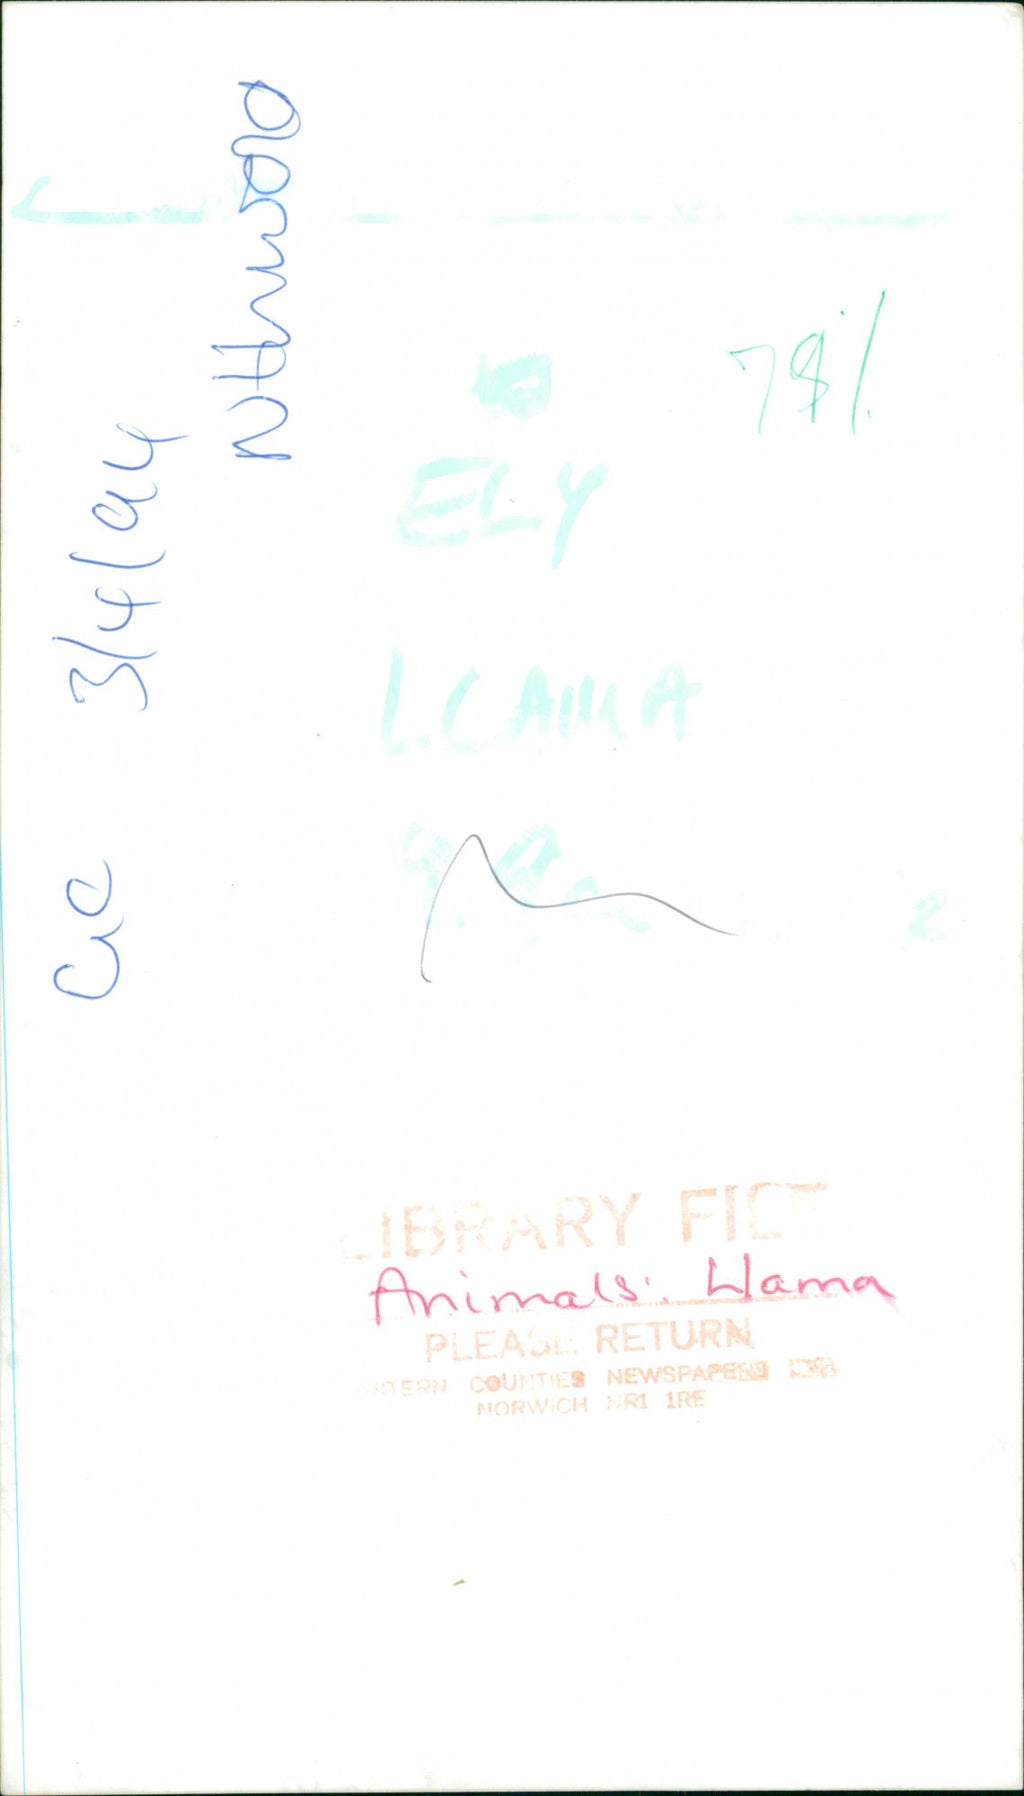 3/4/94
78%
ELY
LLAMA
LIBRARY FILE
Animals: Llama
PLEASE RETURN
EASTERN COUNTIES NEWSPAPERS
NORWICH NR1 1RE